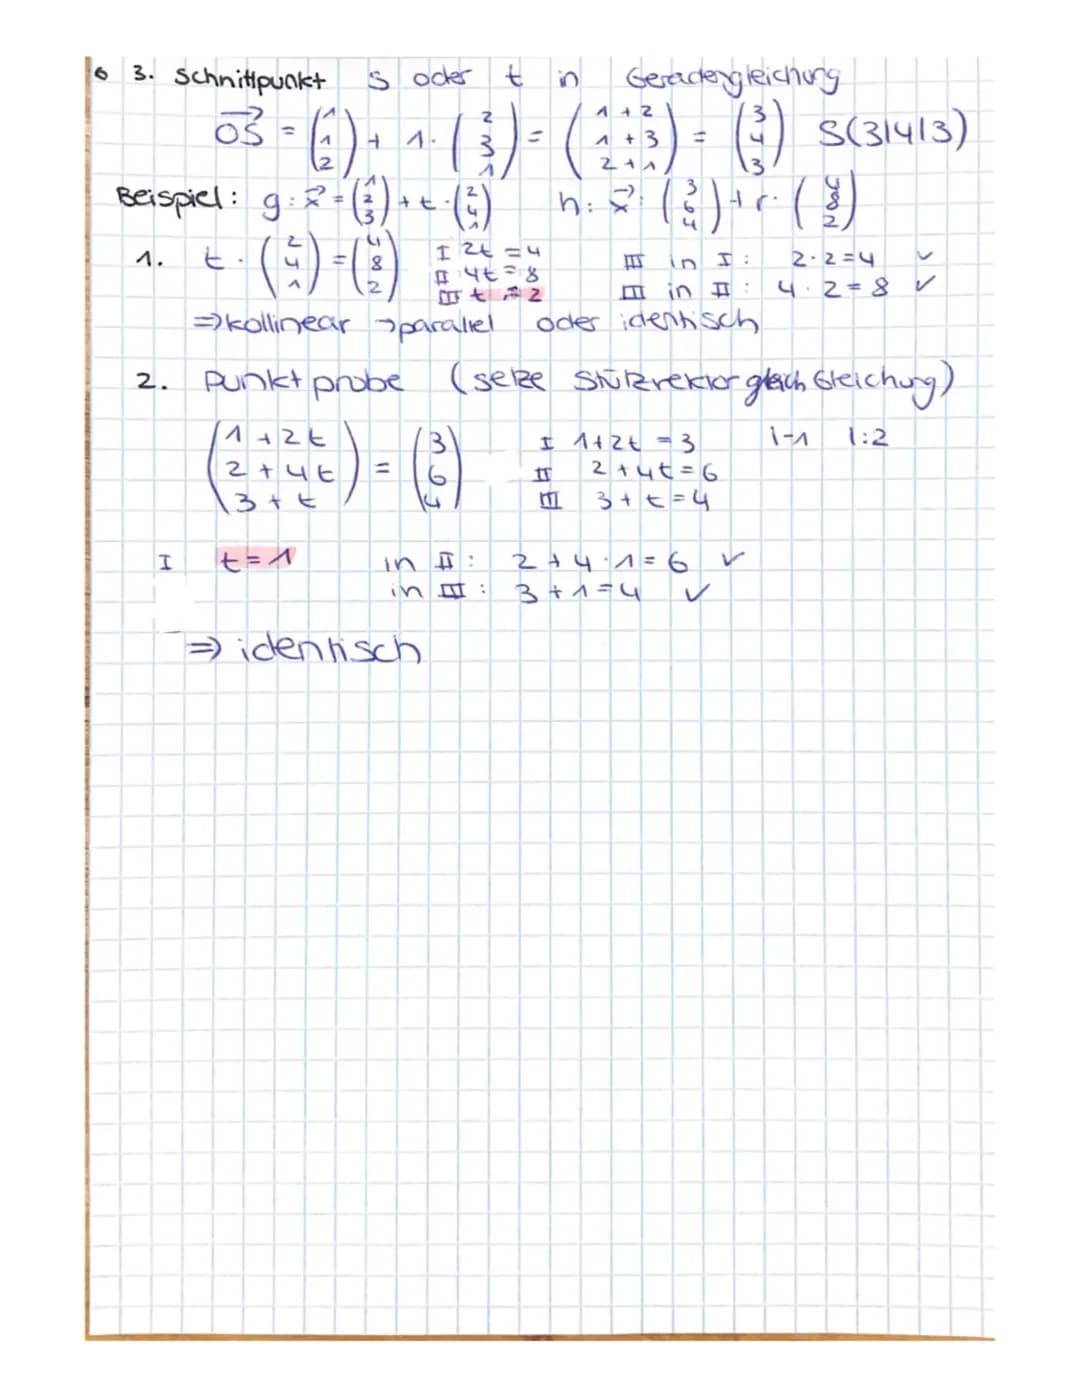 3. Schnittpunkt S oder t in Geradengleichung
OS⃗ = (1 1 2) + 1 · (2 3 1) = (1+2 1+3 2+1) = (3 4 3) S(3|4|3)
Beispiel: g: x⃗ = (1 2 3) + t · (2 4 1) h: x⃗: (3 6 4) + r · (4 8 2)
1. t · (2 4 1) = (4 8 2)
I 2t = 4 III in I: 2·2=4 ✓
II 4t = 8 III in II: 4·2=8 ✓
III t = 2
⇒ kollinear → parallel oder identisch
2. Punktprobe (setze Stützvektor gleich Gleichung)
(1+2t 2+4t 3+t) = (3 6 4)
I 1+2t = 3 |-1 |:2
II 2+4t = 6
III 3+t = 4
I t = 1 in II: 2+4·1=6 ✓
in III: 3+1=4 ✓
⇒ identisch